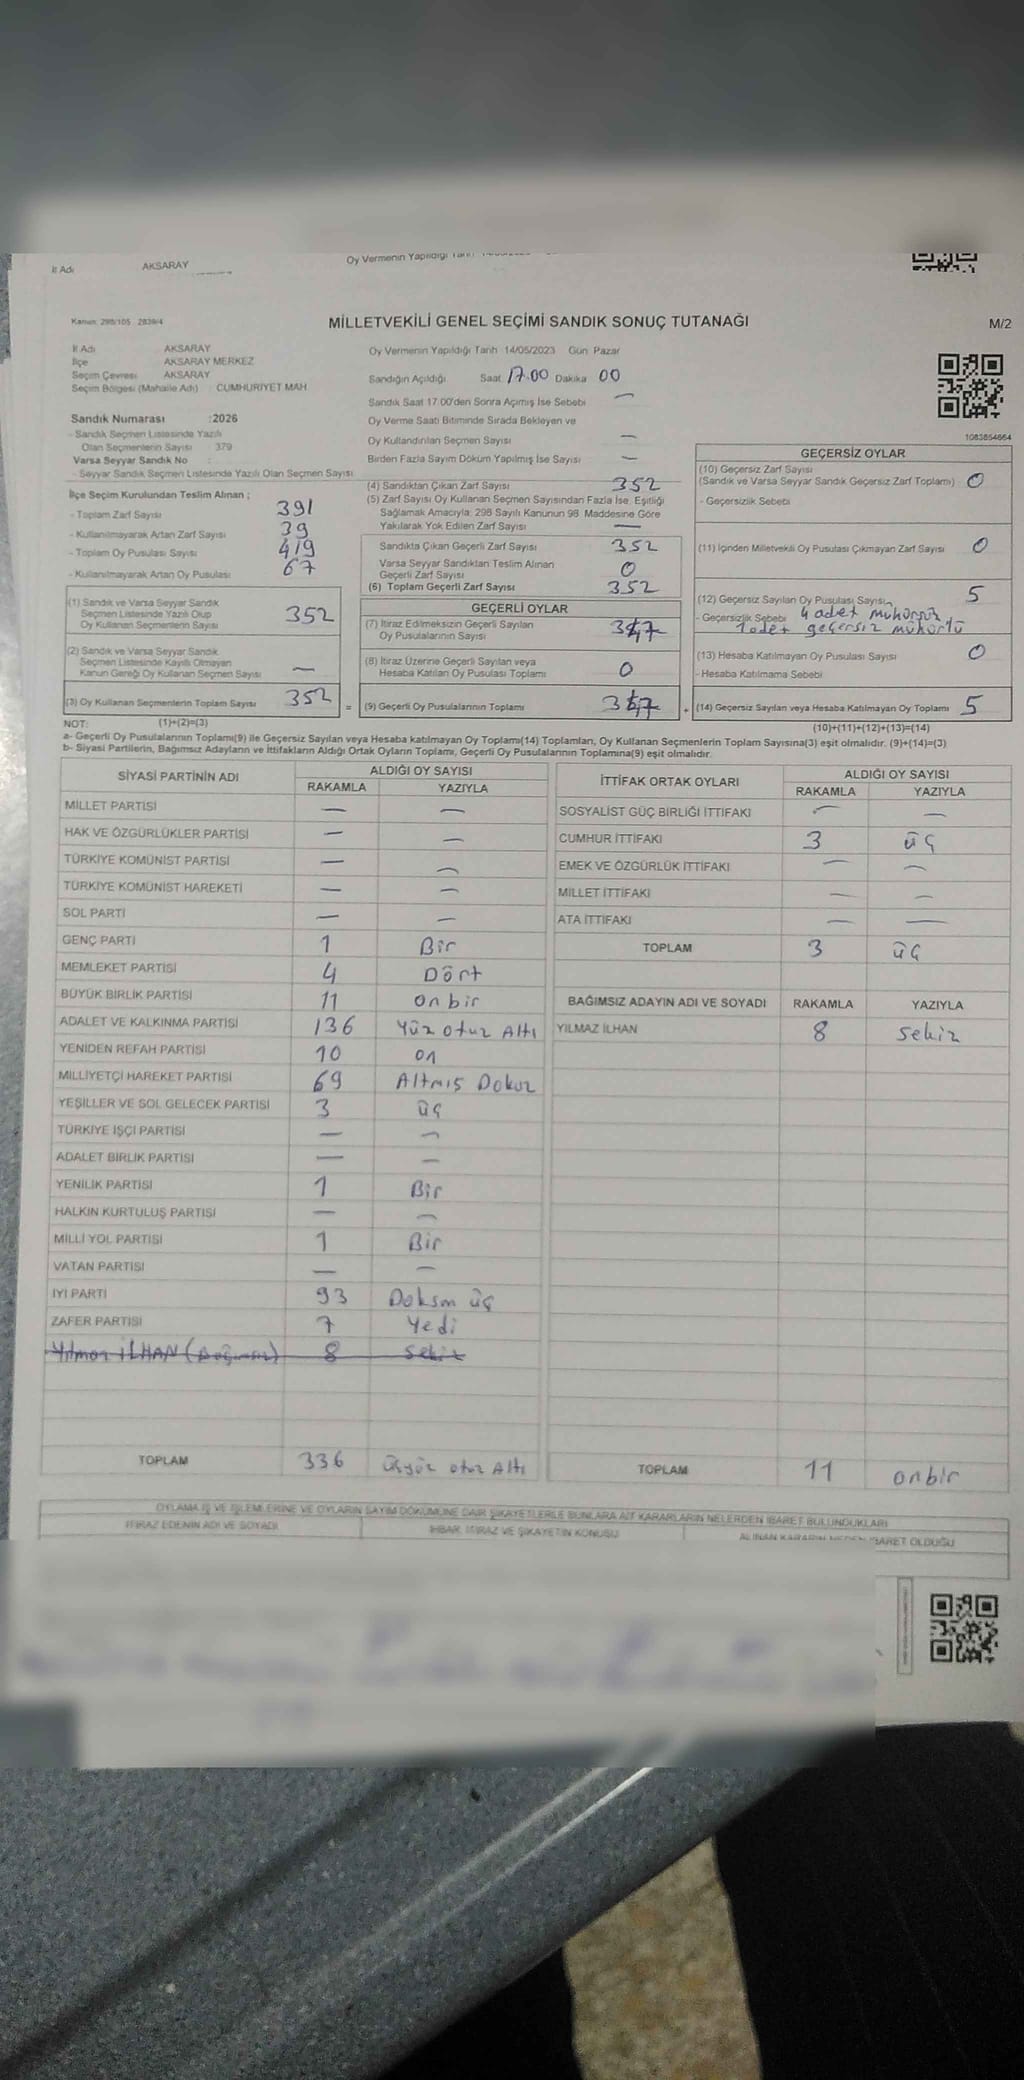 İl Adı AKSARAY Oy Vermenin Yapıldığı
Kanun: 298/105 2839/4
MİLLETVEKİLİ GENEL SEÇİMİ SANDIK SONUÇ TUTANAĞI
M/2
İl Adı AKSARAY
İlçe AKSARAY MERKEZ
Seçim Çevresi AKSARAY
Seçim Bölgesi (Mahalle Adı) : CUMHURİYET MAH
Sandık Numarası :2026
- Sandık Seçmen Listesinde Yazılı
Olan Seçmenlerin Sayısı : 379
Varsa Seyyar Sandık No :
- Seyyar Sandık Seçmen Listesinde Yazılı Olan Seçmen Sayısı
İlçe Seçim Kurulundan Teslim Alınan ;
- Toplam Zarf Sayısı 391
- Kullanılmayarak Artan Zarf Sayısı 39
- Toplam Oy Pusulası Sayısı 419
- Kullanılmayarak Artan Oy Pusulası 67
(1) Sandık ve Varsa Seyyar Sandık
Seçmen Listesinde Yazılı Olup
Oy Kullanan Seçmenlerin Sayısı 352
(2) Sandık ve Varsa Seyyar Sandık
Seçmen Listesinde Kayıtlı Olmayan
Kanun Gereği Oy Kullanan Seçmen Sayısı —
(3) Oy Kullanan Seçmenlerin Toplam Sayısı 352 =
Oy Vermenin Yapıldığı Tarih 14/05/2023 Gün Pazar
Sandığın Açıldığı Saat 17.00 Dakika 00
Sandık Saat 17.00'den Sonra Açımış İse Sebebi —
Oy Verme Saati Bitiminde Sırada Bekleyen ve
Oy Kullandırılan Seçmen Sayısı —
Birden Fazla Sayım Döküm Yapılmış İse Sayısı —
(4) Sandıktan Çıkan Zarf Sayısı 352
(5) Zarf Sayısı Oy Kullanan Seçmen Sayısından Fazla İse, Eşitliği
Sağlamak Amacıyla; 298 Sayılı Kanunun 98. Maddesine Göre
Yakılarak Yok Edilen Zarf Sayısı —
Sandıkta Çıkan Geçerli Zarf Sayısı 352
Varsa Seyyar Sandıktan Teslim Alınan
Geçerli Zarf Sayısı 0
(6) Toplam Geçerli Zarf Sayısı 352
GEÇERLİ OYLAR
(7) İtiraz Edilmeksizin Geçerli Sayılan
Oy Pusulalarının Sayısı 347
(8) İtiraz Üzerine Geçerli Sayılan veya
Hesaba Katılan Oy Pusulası Toplamı 0
(9) Geçerli Oy Pusulalarının Toplamı 347 +
1083854664
GEÇERSİZ OYLAR
(10) Geçersiz Zarf Sayısı
(Sandık ve Varsa Seyyar Sandık Geçersiz Zarf Toplamı) 0
- Geçersizlik Sebebi
(11) İçinden Milletvekili Oy Pusulası Çıkmayan Zarf Sayısı 0
(12) Geçersiz Sayılan Oy Pusulası Sayısı 5
- Geçersizlik Sebebi 4 adet mühürsüz,
1 adet geçersiz mühürlü
(13) Hesaba Katılmayan Oy Pusulası Sayısı 0
- Hesaba Katılmama Sebebi
(14) Geçersiz Sayılan veya Hesaba Katılmayan Oy Toplamı 5
NOT: (1)+(2)=(3) (10)+(11)+(12)+(13)=(14)
a- Geçerli Oy Pusulalarının Toplamı(9) ile Geçersiz Sayılan veya Hesaba katılmayan Oy Toplamı(14) Toplamları, Oy Kullanan Seçmenlerin Toplam Sayısına(3) eşit olmalıdır. (9)+(14)=(3)
b- Siyasi Partilerin, Bağımsız Adayların ve İttifakların Aldığı Ortak Oyların Toplamı, Geçerli Oy Pusulalarının Toplamına(9) eşit olmalıdır.
SİYASİ PARTİNİN ADI ALDIĞI OY SAYISI
RAKAMLA YAZIYLA
MİLLET PARTİSİ — —
HAK VE ÖZGÜRLÜKLER PARTİSİ — —
TÜRKİYE KOMÜNİST PARTİSİ — —
TÜRKİYE KOMÜNİST HAREKETİ — —
SOL PARTİ — —
GENÇ PARTİ 1 Bir
MEMLEKET PARTİSİ 4 Dört
BÜYÜK BİRLİK PARTİSİ 11 on bir
ADALET VE KALKINMA PARTİSİ 136 Yüz otuz Altı
YENİDEN REFAH PARTİSİ 10 on
MİLLİYETÇİ HAREKET PARTİSİ 69 Altmış Dokuz
YEŞİLLER VE SOL GELECEK PARTİSİ 3 üç
TÜRKİYE İŞÇİ PARTİSİ — —
ADALET BİRLİK PARTİSİ — —
YENİLİK PARTİSİ 1 Bir
HALKIN KURTULUŞ PARTİSİ — —
MİLLİ YOL PARTİSİ 1 Bir
VATAN PARTİSİ — —
İYİ PARTİ 93 Doksan üç
ZAFER PARTİSİ 7 Yedi
Yılmaz İLHAN (Bağımsız) 8 Sekiz
TOPLAM 336 üçyüz otuz Altı
İTTİFAK ORTAK OYLARI ALDIĞI OY SAYISI
RAKAMLA YAZIYLA
SOSYALİST GÜÇ BİRLİĞİ İTTİFAKI — —
CUMHUR İTTİFAKI 3 üç
EMEK VE ÖZGÜRLÜK İTTİFAKI — —
MİLLET İTTİFAKI — —
ATA İTTİFAKI — —
TOPLAM 3 üç
BAĞIMSIZ ADAYIN ADI VE SOYADI RAKAMLA YAZIYLA
YILMAZ İLHAN 8 sekiz
TOPLAM 11 onbir
OYLAMA İŞ VE İŞLEMLERİNE VE OYLARIN SAYIM DÖKÜMÜNE DAİR ŞİKAYETLERLE BUNLARA AİT KARARLARIN NELERDEN İBARET BULUNDUKLARI
İTİRAZ EDENİN ADI VE SOYADI İHBAR, İTİRAZ VE ŞİKAYETİN KONUSU ALINAN KARARIN NEDEN İBARET OLDUĞU